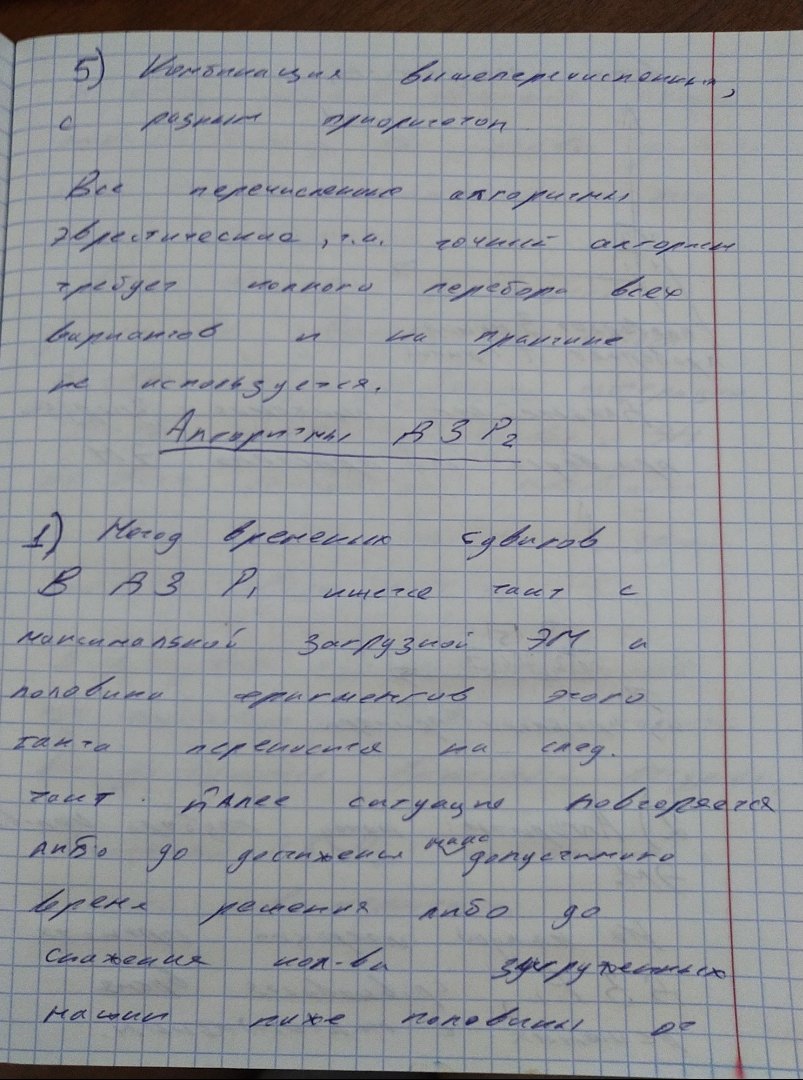 5) Комбинация вышеперечисленных,
с разным приоритетом
Все перечисленные алгоритмы
эврестические, т.к. точный алгоритм
требует полного перебора всех
вариантов и на практике
не используется.
Алгоритмы ДЗ P2
1) Метод временных сдвигов
В ДЗ P1 ищется такт с
максимальной загрузкой ЭМ и
половина фрагментов этого
такта переносится на след.
такт. Далее ситуация повторяется
либо до достижения макс допустимого
время решения либо до
снижения кол-ва загруженных
машин ниже половины от